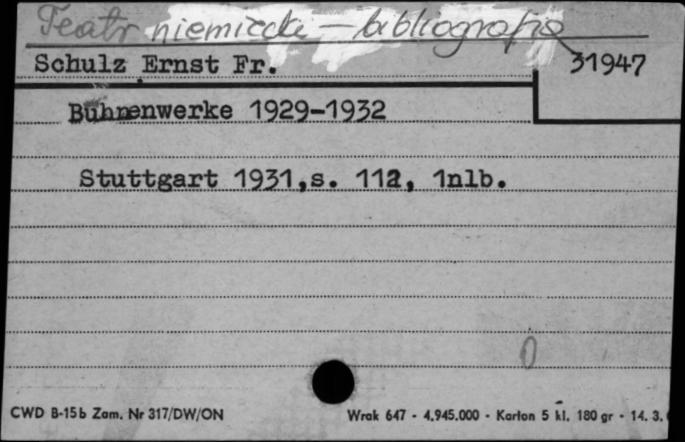 Teatr niemiecki – bibliografia
Schulz Ernst Fr. 31947
Bühnenwerke 1929-1932
Stuttgart 1931,s. 112, 1nlb.
0
CWD B-15b Zam. Nr 317/DW/ON Wrak 647 - 4.945.000 - Karton 5 kl. 180 gr - 14. 3.